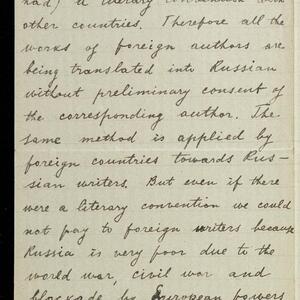 had) a literary convention with
other countries. Therefore all the
works of foreign authors are
being translated into Russian
without preliminary consent of
the corresponding author. The
same method is applied by
foreign countries towards Rus-
sian writers. But even if there
were a literary convention we could
not pay to foreign writers because
Russia is very poor due to the
world war, civil war and
blockade by European powers